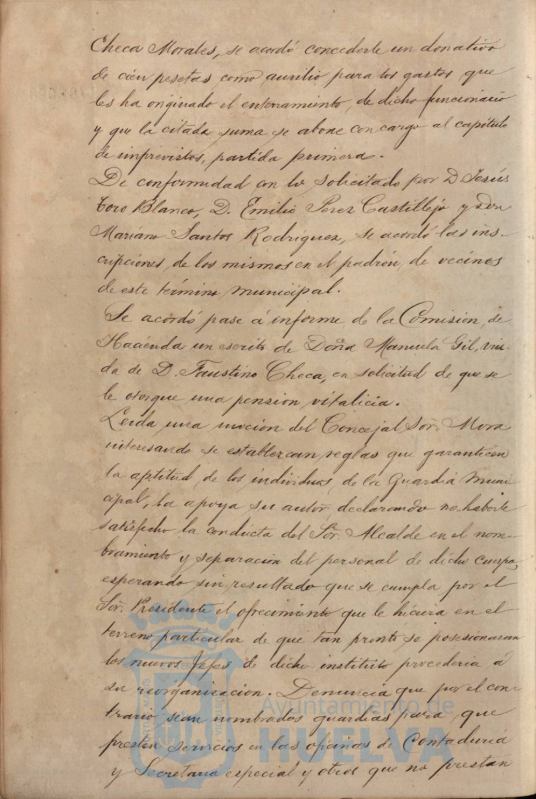 Checa Morales, se acordó concederle un donativo
de cien pesetas como auxilio para los gastos que
les ha originado el enterramiento, de dicho funcionario
y que la citada suma se abone con cargo al capítulo
de imprevistos, partida primera.
De conformidad con lo solicitado por D. Jesús
Toro Blanco, D. Emilio Perez Castillejo y Don
Mariano Santos Rodriguez, se acordó las ins-
cripciones, de los mismos en el padrón, de vecinos
de este término municipal.
Se acordó pase á informe de la Comisión, de
Hacienda un escrito de Doña Manuela Gil, viu-
da de D. Faustino Checa, en solicitud de que se
le otorgue una pensión vitalicia.
Leida una moción del Concejal Sor. Mora
interesando se establezcan reglas que garanticen
la aptitud, de los individuos, de la Guardia muni
cipal, la apoya su autor declarando no haberle
satisfecho la conducta del Sor. Alcalde en el nom-
bramiento y separación del personal de dicho cuerpo,
esperando sin resultado que se cumpla por el
Sor. Presidente el ofrecimiento que le hiciera en el
terreno particular de que tan pronto se posesionaran
los nuevos Jefes de dicho instituto procederia á
su reorganización. Denuncia que por el con
trario sean nombrados guardias para que
presten servicios en las oficinas de Contaduría
y Secretaría especial y otros que no prestan
Ayuntamiento de
HUELVA